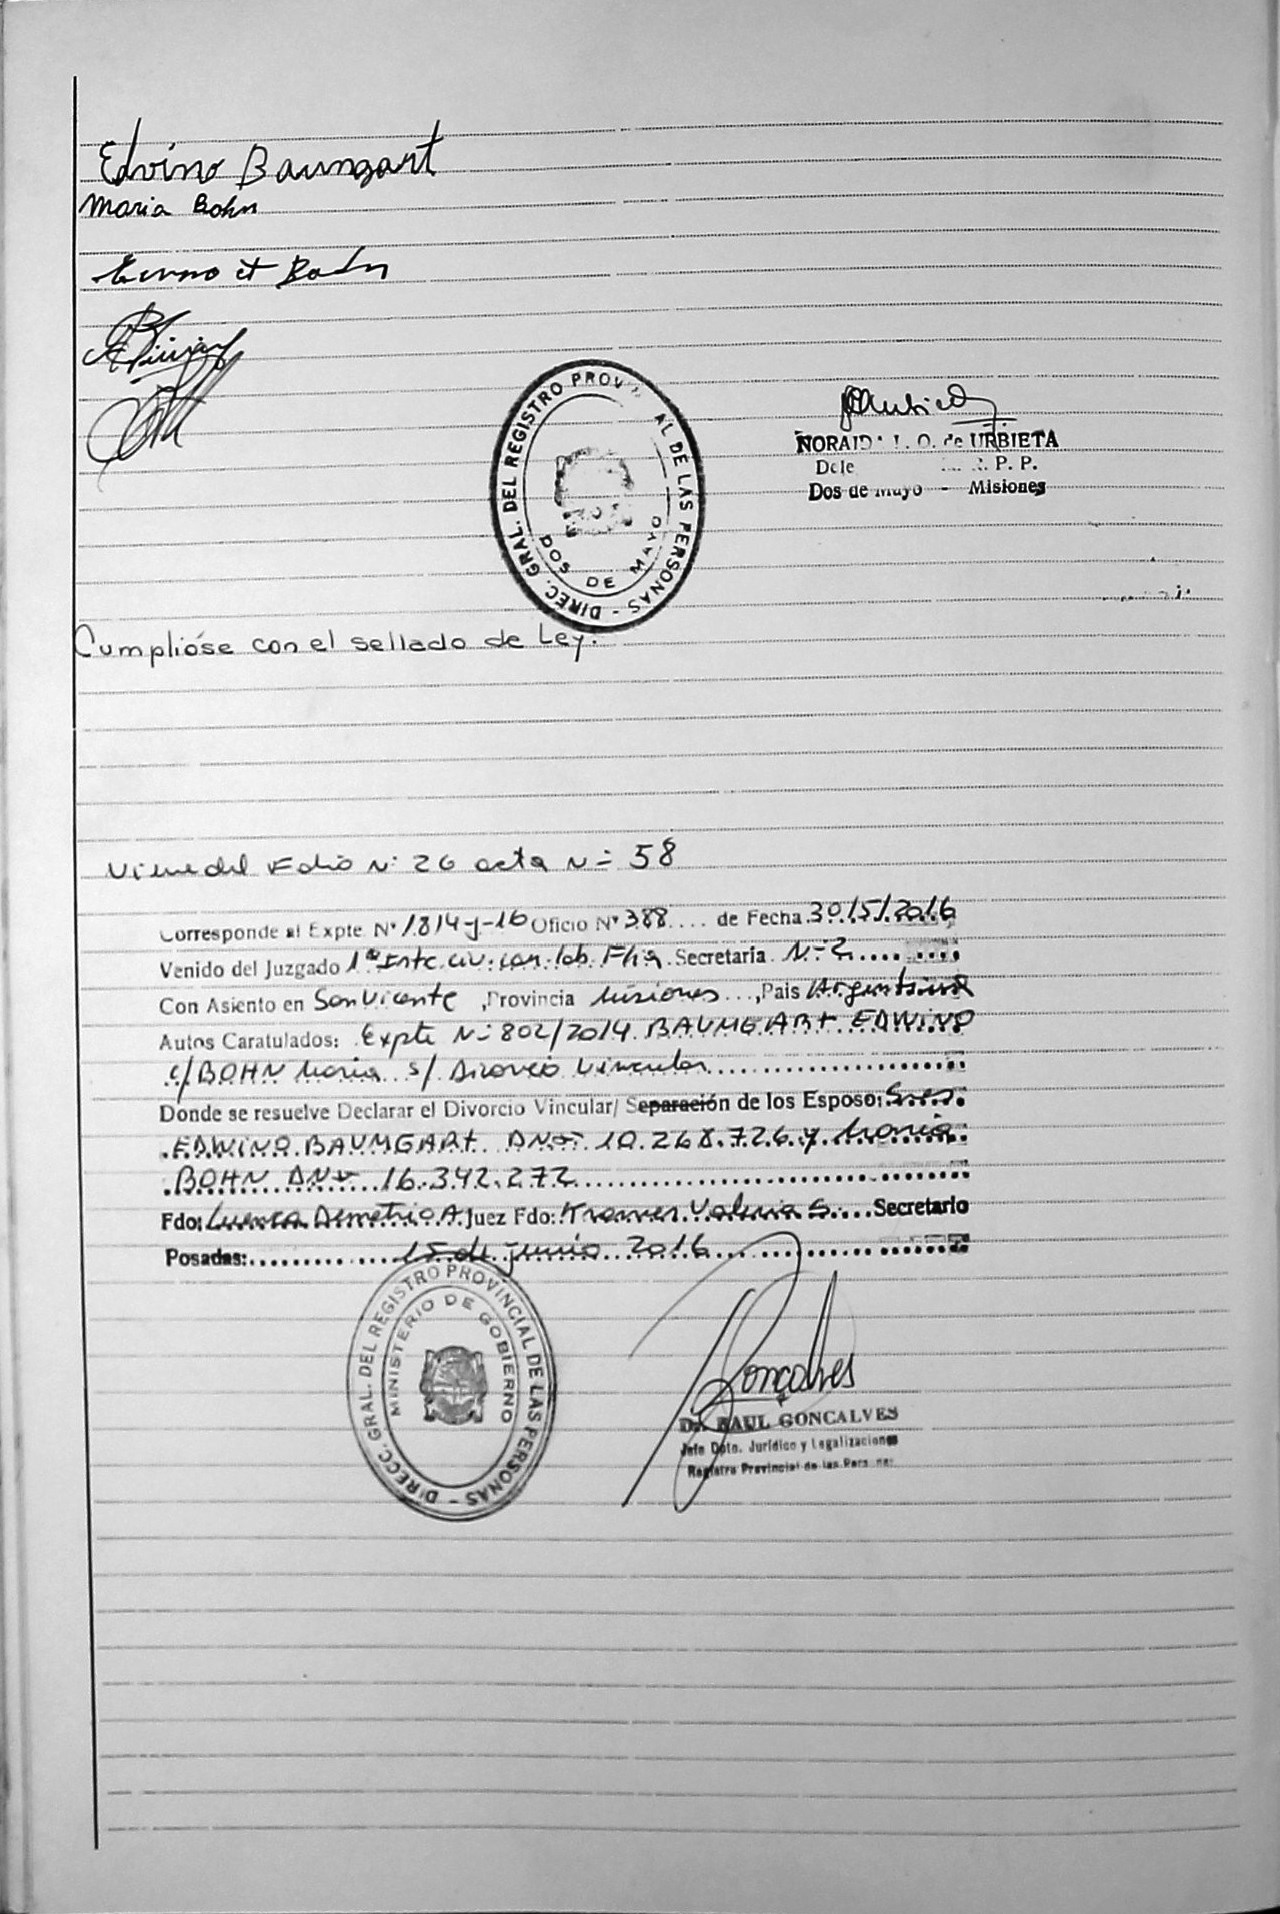 Edvino Baumgart
Maria Bohn
Bohn
DIREC. GRAL. DEL REGISTRO PROV AL DE LAS PERSONAS -
DOS DE MAYO
NORAID L. O. de URBIETA
Dele P. P.
Dos de Mayo - Misiones
Cumplióse con el sellado de Ley.
Viene del Folio N: 26 acta N= 58
Corresponde al Expte Nº 1814-y-16 Oficio Nº 388 .... de Fecha 30/5/2016
Venido del Juzgado 1ª Inte civ. com. lab. Flia Secretaria N-2
Con Asiento en San Vicente, Provincia Misiones ..., Pais Argentina
Autos Caratulados: Expte N-802/2014 BAUMGART EDWINO
c/ BOHN Maria s/ Divorcio Vincular
Donde se resuelve Declarar el Divorcio Vincular/ Separación de los Esposo: Sres.
EDWINO BAUMGART DNI 10.268.726 y Maria
BOHN DNI 16.342.272
Fdo: Cuenca Demetrio A. Juez Fdo: Kramer Valeria S. Secretario
Posadas: 15 de junio 2016
DIRECC. GRAL. DEL REGISTRO PROVINCIAL DE LAS PERSONAS -
MINISTERIO DE GOBIERNO
Goncalves
Dr. RAUL GONCALVES
Jefe Dpto. Jurídico y Legalizaciones
Registro Provincial de las Pers